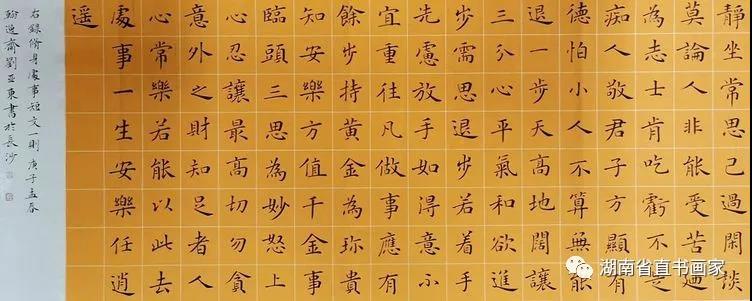 靜坐常思己過閑談
莫論人非能受苦迺
為志士肯吃虧不是
痴人敬君子方顯有
德怕小人不算無能
退一步天高地闊讓
三分心平氣和欲進
步需思退步若着手
先慮放手如得意不
宜重往凡做事應有
餘步持黃金為珍貴
知安樂方值千金事
臨頭三思為妙怒上
心忍讓最高切勿貪
意外之財知足者人
心常樂若能以此去
處事一生安樂任逍
遥
右録脩身處事短文一則庚子孟春
翰逸齋劉亞東書於長沙
湖南省直书画家